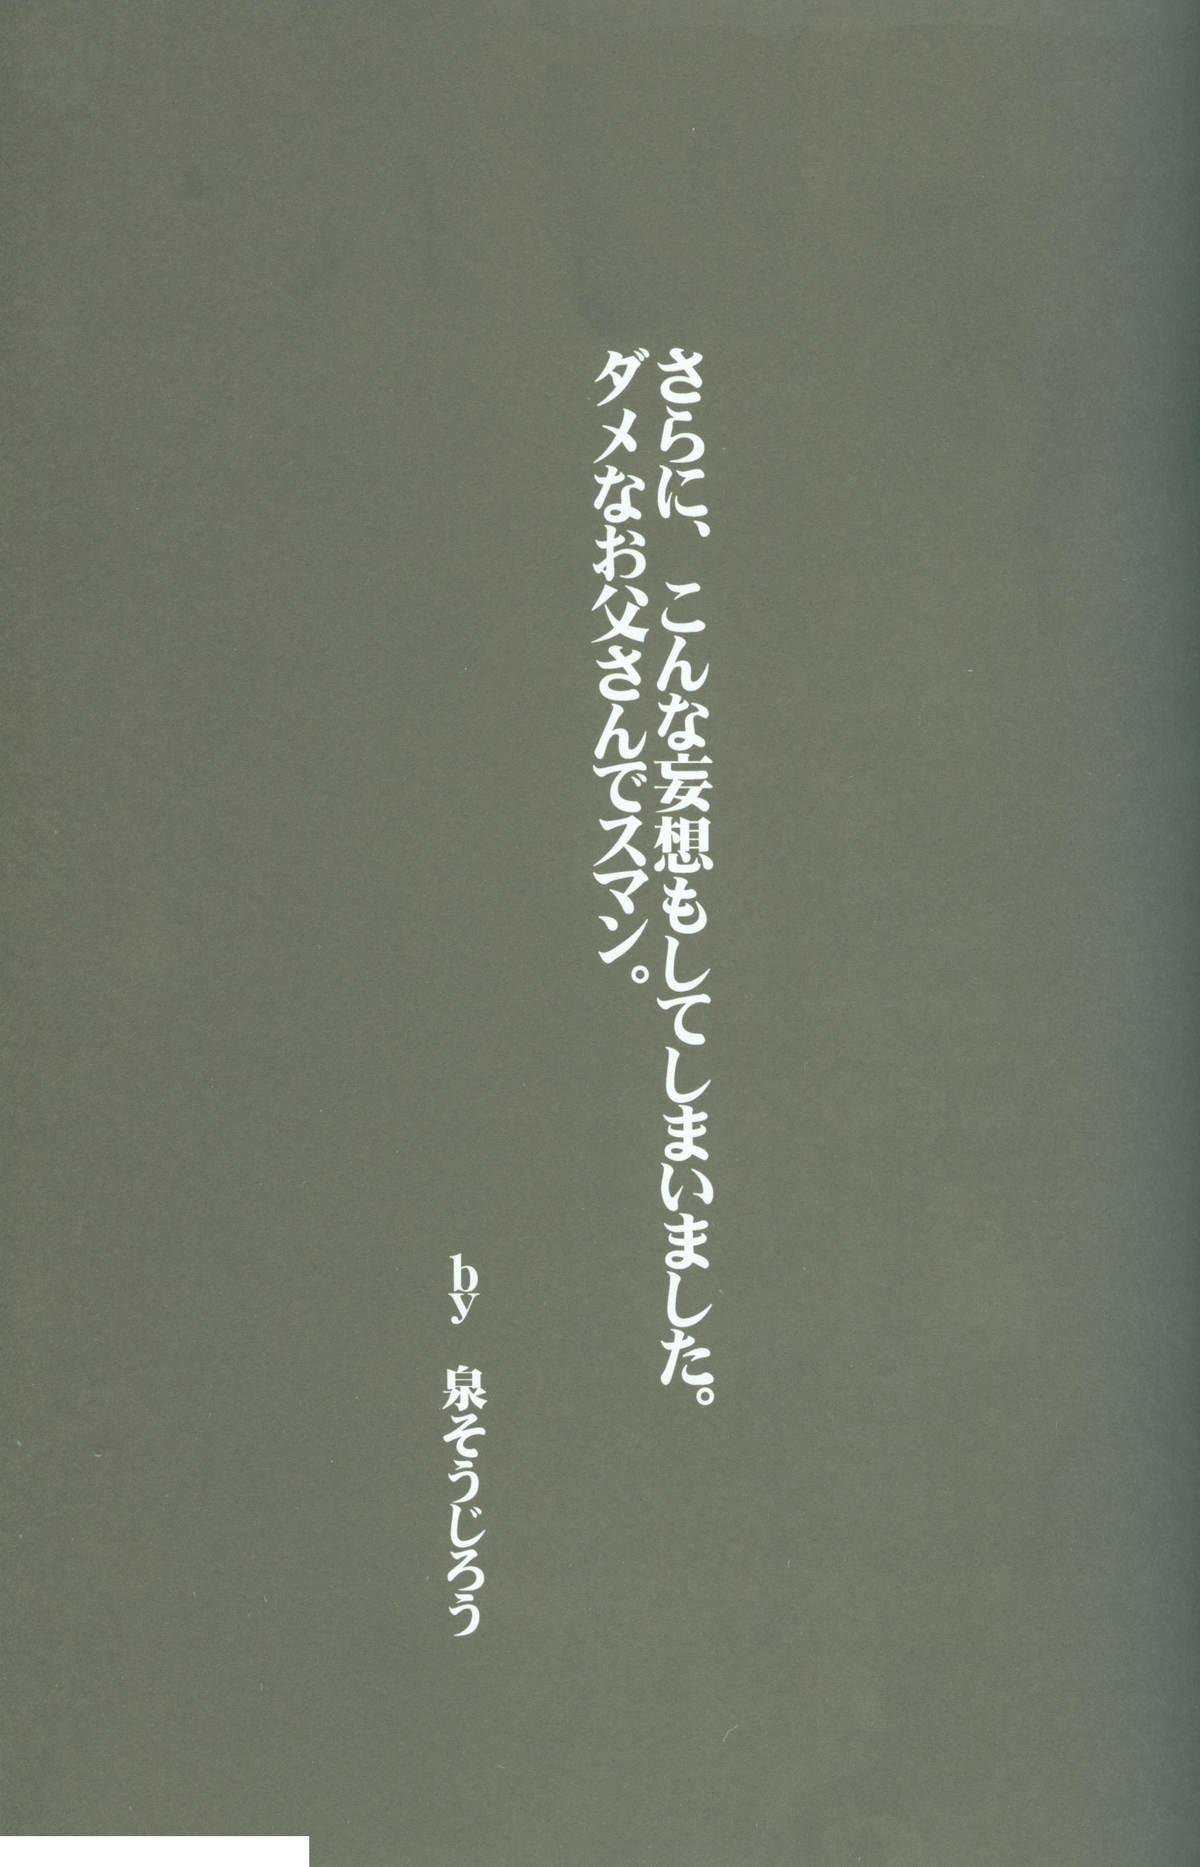 さらに、こんな妄想もしてしまいました。
ダメなお父さんでスマン。
by　泉そうじろう